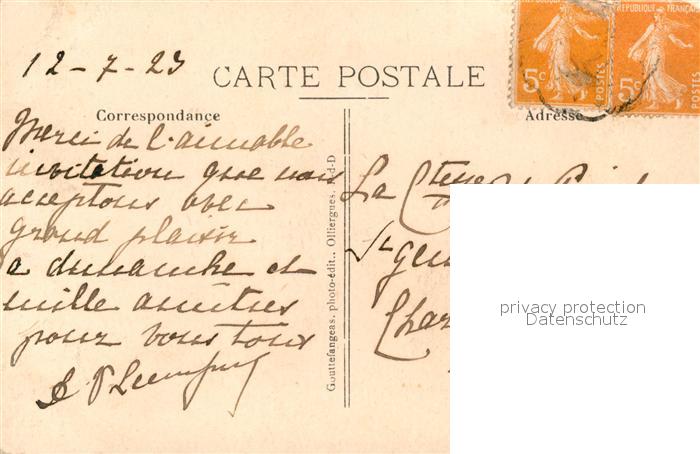 12-7-23
CARTE POSTALE
Correspondance
Adresse
REPUBLIQUE FRANÇAISE
5c
POSTES
REPUBLIQUE FRANÇAIS
5c
POSTES
Merci de l'aimable
invitation que nous
acceptons avec
grand plaisir
a dimanche et
mille amitiés
pour vous tous
Gouttefangeas, photo-édit., Olliergues, P.-d-D
La Ctesse
St
privacy protection
Datenschutz